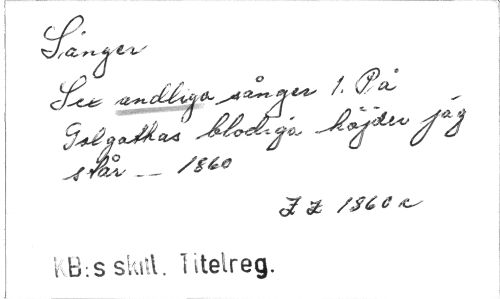 Sånger
Sex andliga sånger 1. På
Golgathas blodiga höjder jag
står -- 1860
1860
KB:s skill. Titelreg.